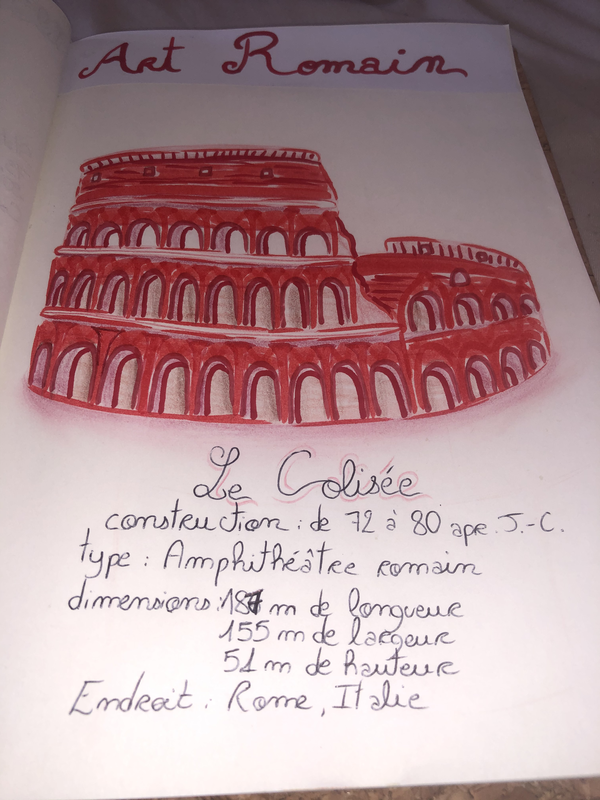 Art Romain
Le Colisée
construction : de 72 à 80 apr. J.-C.
type : Amphithéâtre romain
dimensions : 187 m de longueur
155 m de largeur
51 m de hauteur
Endroit : Rome, Italie